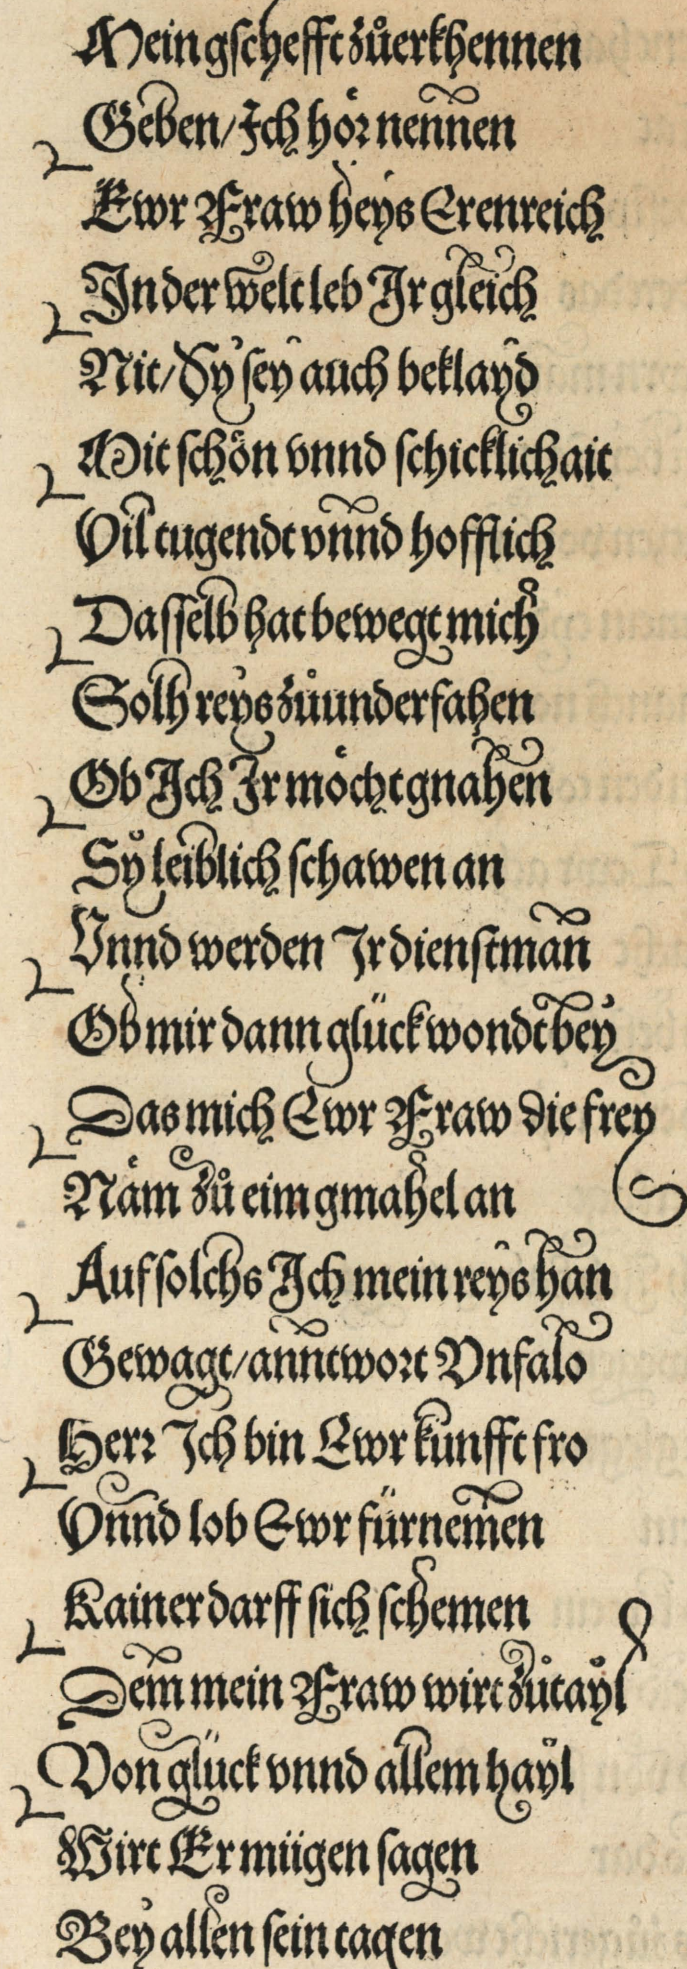 Mein gschefft zůerkhennen
Geben / Ich hör nennen
Ewr Fraw heys Erenreich
In der welt leb Ir gleich
Nit / Sy sey auch beklayd
Mit schön vnnd schicklichait
Vil tugendt vnnd hofflich
Dasselb hat bewegt mich
Solh reys zůunderfahen
Ob Ich Ir möcht gnahen
Sy leiblich schawen an
Vnnd werden Ir dienstman
Ob mir dann glück wondt bey
Das mich Ewr Fraw die frey
Näm zů eim gmahel an
Auf solchs Ich mein reys han
Gewagt / anntwort Vnfalo
Herr Ich bin Ewr kunfft fro
Vnnd lob Ewr fürnemen
Kainer darff sich schemen
Dem mein Fraw wirt zůtayl
Von glück vnnd allem hayl
Wirt Er mügen sagen
Bey allen sein tagen